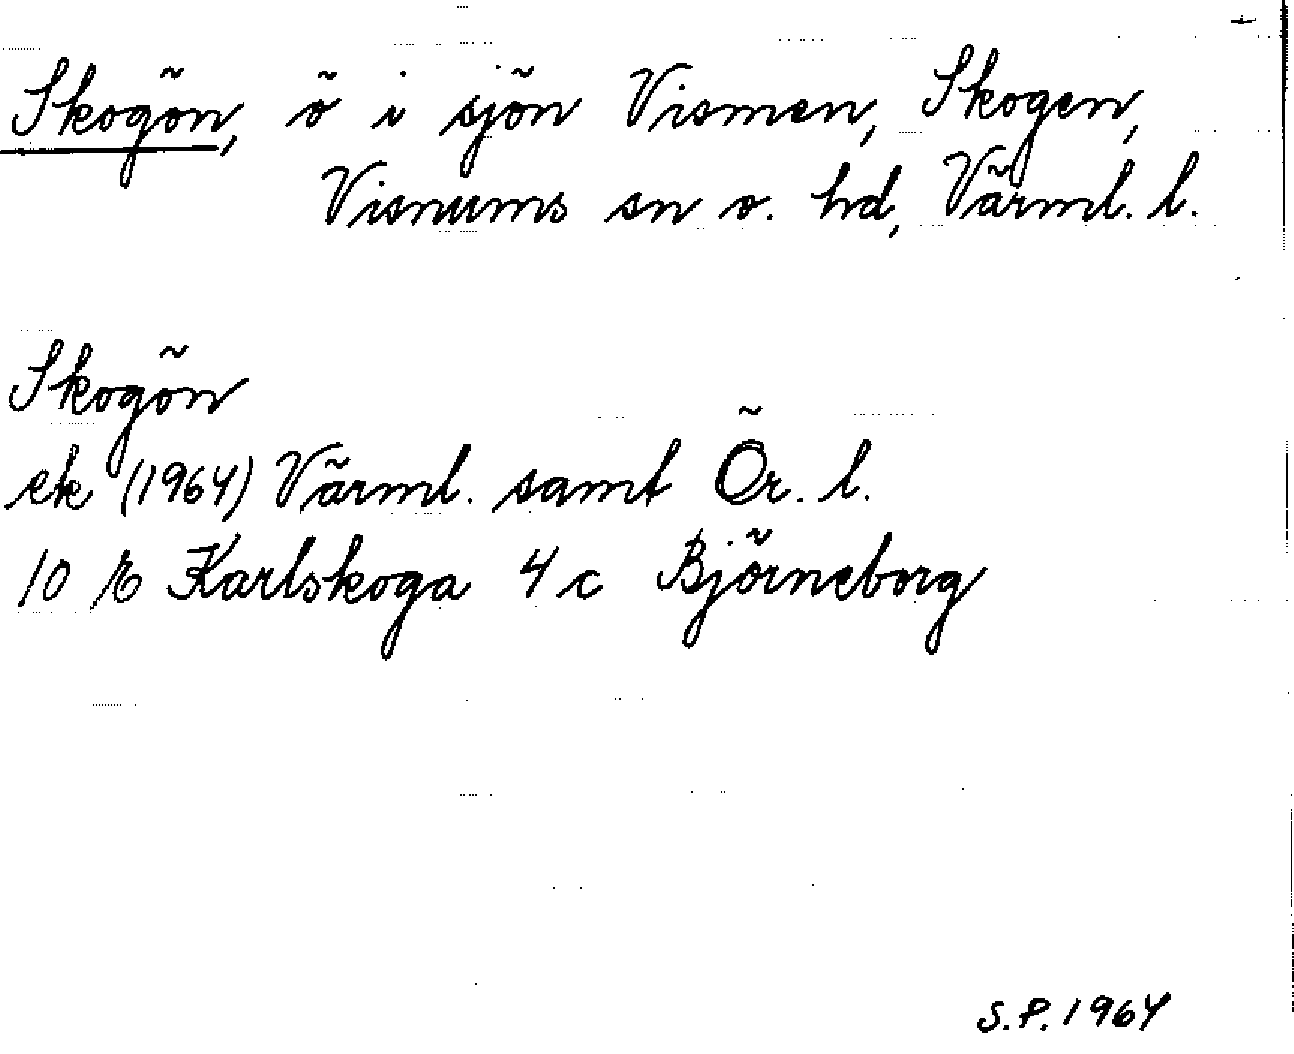 Skogön, ö i sjön Vismen, Skogen,
Visnums sn o. hd, Värml. l.
Skogön
ek (1964) Värml. samt Ör. l.
10 E Karlskoga 4 c Björneborg
S.P. 1964